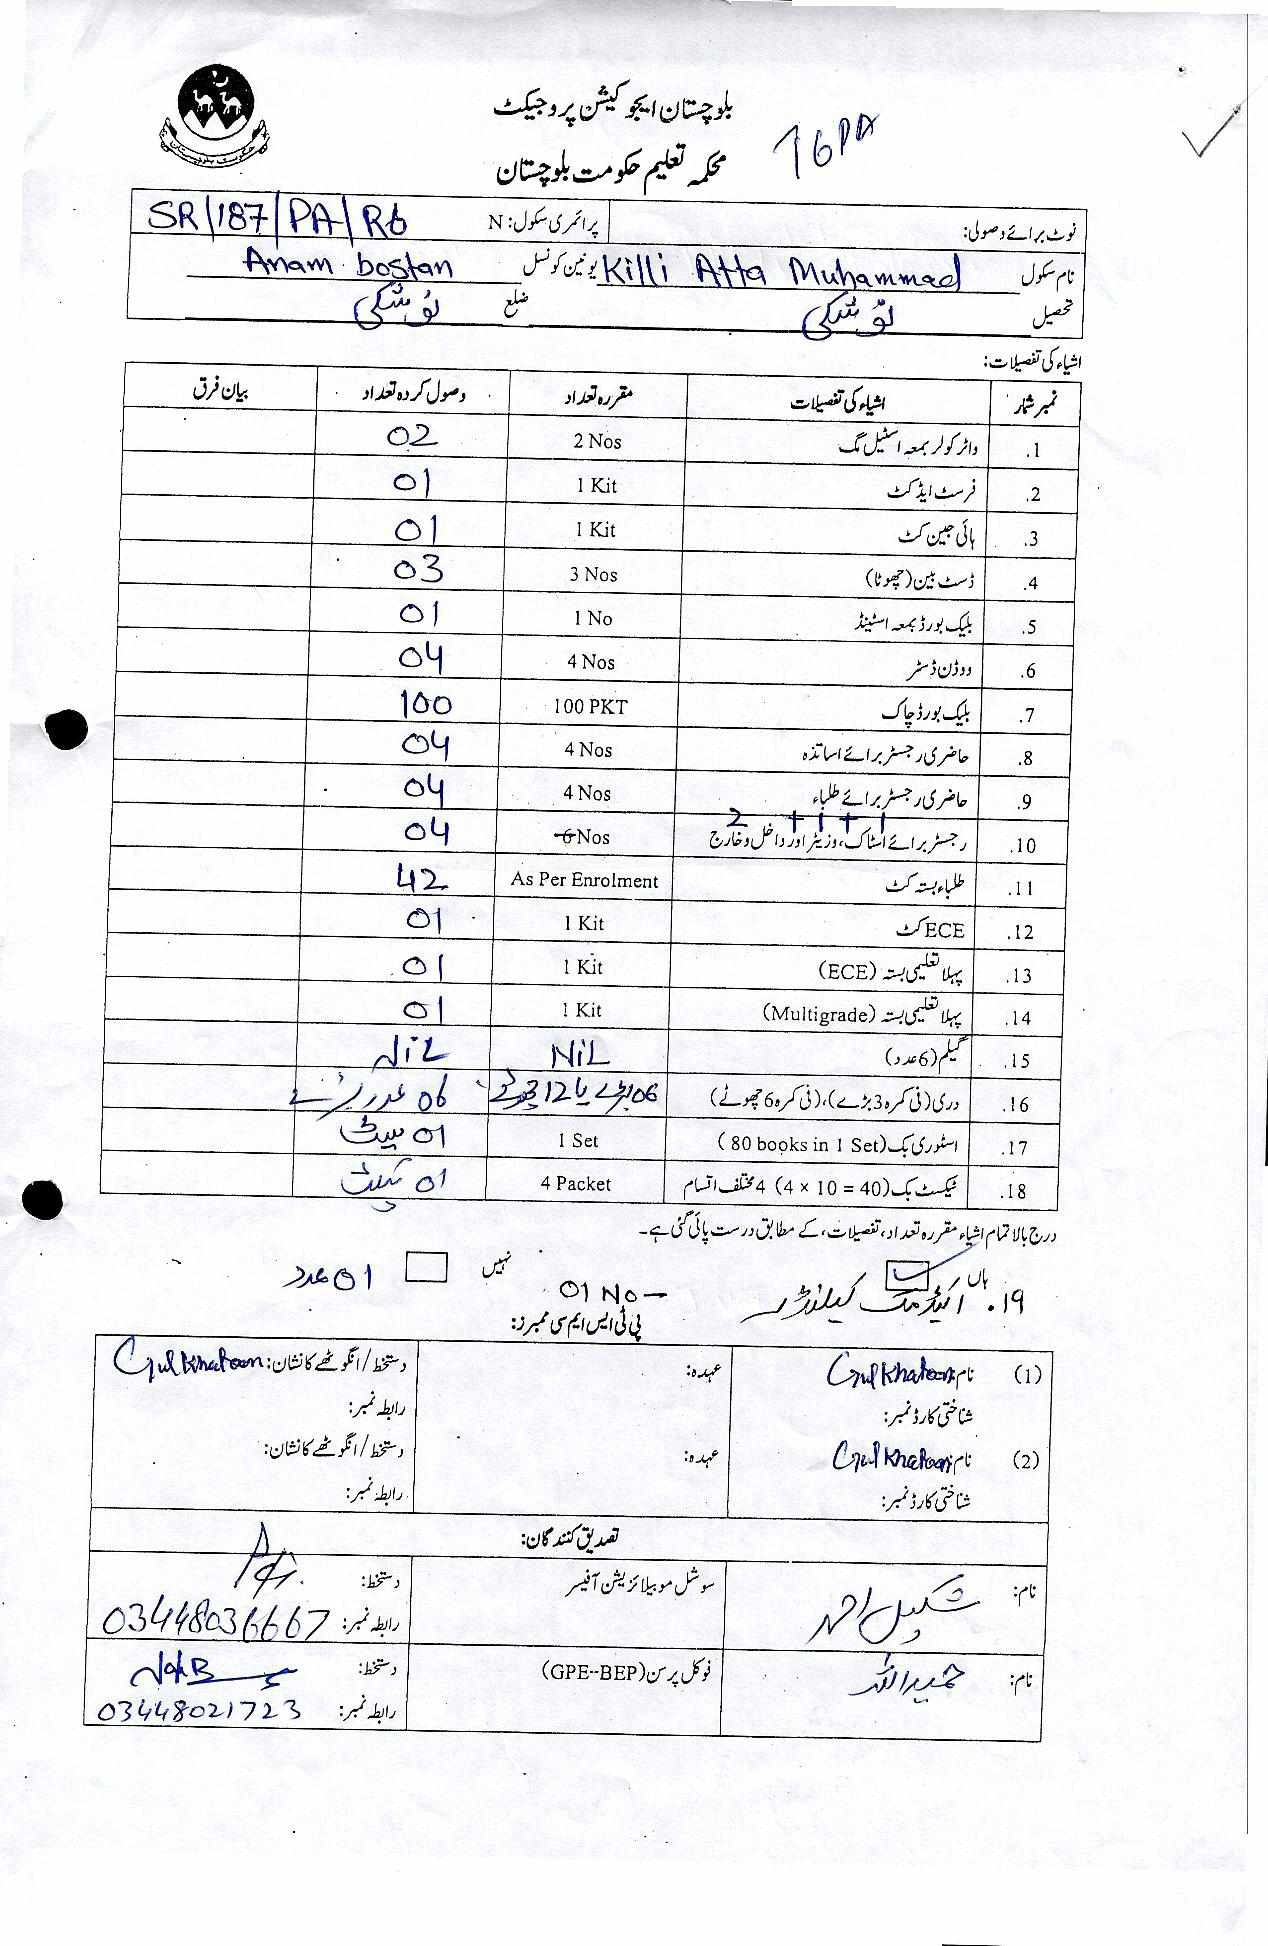 حکومت بلوچستان
بلوچستان ایجوکیشن پروجیکٹ
محکمہ تعلیم حکومت بلوچستان
نوٹ برائے وصولی: پرائمری سکول: N SR/187/PA/R6
نام سکول Killi Atta Muhammad یونین کونسل Anam bostan
تحصیل نوشکی ضلع نوشکی
اشیاء کی تفصیلات:
نمبر شمار اشیاء کی تفصیلات مقررہ تعداد وصول کردہ تعداد بیان فرق
1. واٹر کولر بمعہ اسٹیل مگ 2 Nos 02
2. فرسٹ ایڈ کٹ 1 Kit 01
3. ہائی جین کٹ 1 Kit 01
4. ڈسٹ بین (چھوٹا) 3 Nos 03
5. بلیک بورڈ بمعہ اسٹینڈ 1 No 01
6. ووڈن ڈسٹر 4 Nos 04
7. بلیک بورڈ چاک 100 PKT 100
8. حاضری رجسٹر برائے اساتذہ 4 Nos 04
9. حاضری رجسٹر برائے طلباء 4 Nos 04
2 + 1 + 1
10. رجسٹر برائے اسٹاک، وزیٹر اور داخل و خارج 6 Nos 04
11. طلباء بستہ کٹ As Per Enrolment 42
12. ECE کٹ 1 Kit 01
13. پہلا تعلیمی بستہ (ECE) 1 Kit 01
14. پہلا تعلیمی بستہ (Multigrade) 1 Kit 01
15. گیلم (6 عدد) NiL NiL
16. دری (فی کمرہ 3 بڑے)، (فی کمرہ 6 چھوٹے) 06 بڑے یا 12 چھوٹے 06 عدد بڑے
17. اسٹوری بک (80 books in 1 Set) 1 Set 01 سیٹ
18. ٹیکسٹ بک (4 x 10 = 40) 4 مختلف اقسام 4 Packet 01 پیکٹ
درج بالا تمام اشیاء مقررہ تعداد، تفصیلات، کے مطابق درست پائی گئی ہے۔
ہاں نہیں
۱۹. اکیڈمک کیلنڈر 01 No — 01 عدد
پی ٹی ایس ایم سی ممبرز:
(1) نام: Gul Khatoon عہدہ: دستخط/انگوٹھے کا نشان: Gul Khatoon
شناختی کارڈ نمبر: رابطہ نمبر:
(2) نام: Gul Khatoon عہدہ: دستخط/انگوٹھے کا نشان:
شناختی کارڈ نمبر: رابطہ نمبر:
تصدیق کنندگان:
نام: شکیل احمد سوشل موبیلائزیشن آفیسر دستخط:
رابطہ نمبر: 03448036667
نام: حمید اللہ فوکل پرسن (GPE--BEP) دستخط:
رابطہ نمبر: 03448021723